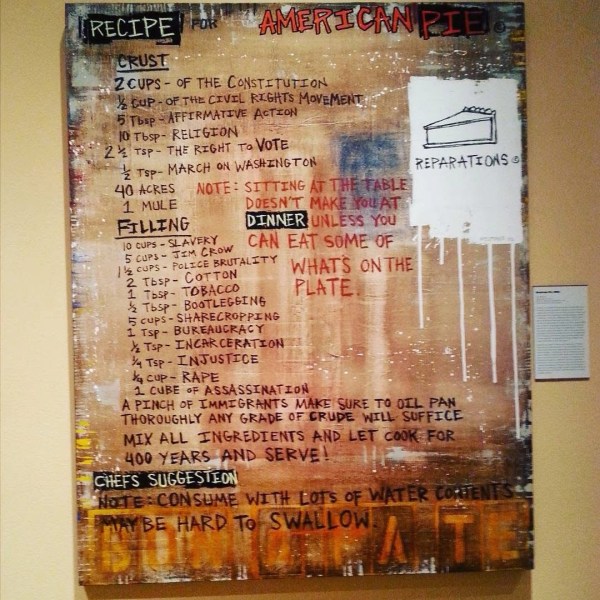 RECIPE FOR AMERICAN PIE ©
CRUST
2 CUPS - OF THE CONSTITUTION
½ CUP - OF THE CIVIL RIGHTS MOVEMENT
5 Tbsp - AFFIRMATIVE ACTION
10 Tbsp - RELIGION
2 ½ TSP - THE RIGHT TO VOTE
½ TSP - MARCH ON WASHINGTON
40 ACRES
1 MULE
REPARATIONS ©
NOTE: SITTING AT THE TABLE
DOESN'T MAKE YOU AT
DINNER UNLESS YOU
CAN EAT SOME OF
WHAT'S ON THE
PLATE.
FILLING
10 CUPS - SLAVERY
5 CUPS - JIM CROW
1 ½ CUPS - POLICE BRUTALITY
2 Tbsp - COTTON
1 Tbsp - TOBACCO
½ Tbsp - BOOTLEGGING
5 CUPS - SHARECROPPING
1 TSP - BUREAUCRACY
½ TSP - INCARCERATION
¼ TSP - INJUSTICE
¼ CUP - RAPE
1 CUBE OF ASSASSINATION
A PINCH OF IMMIGRANTS MAKE SURE TO OIL PAN
THOROUGHLY ANY GRADE OF CRUDE WILL SUFFICE
MIX ALL INGREDIENTS AND LET COOK FOR
400 YEARS AND SERVE!
CHEFS SUGGESTION
NOTE: CONSUME WITH LOTS OF WATER CONTENTS
MAY BE HARD TO SWALLOW.